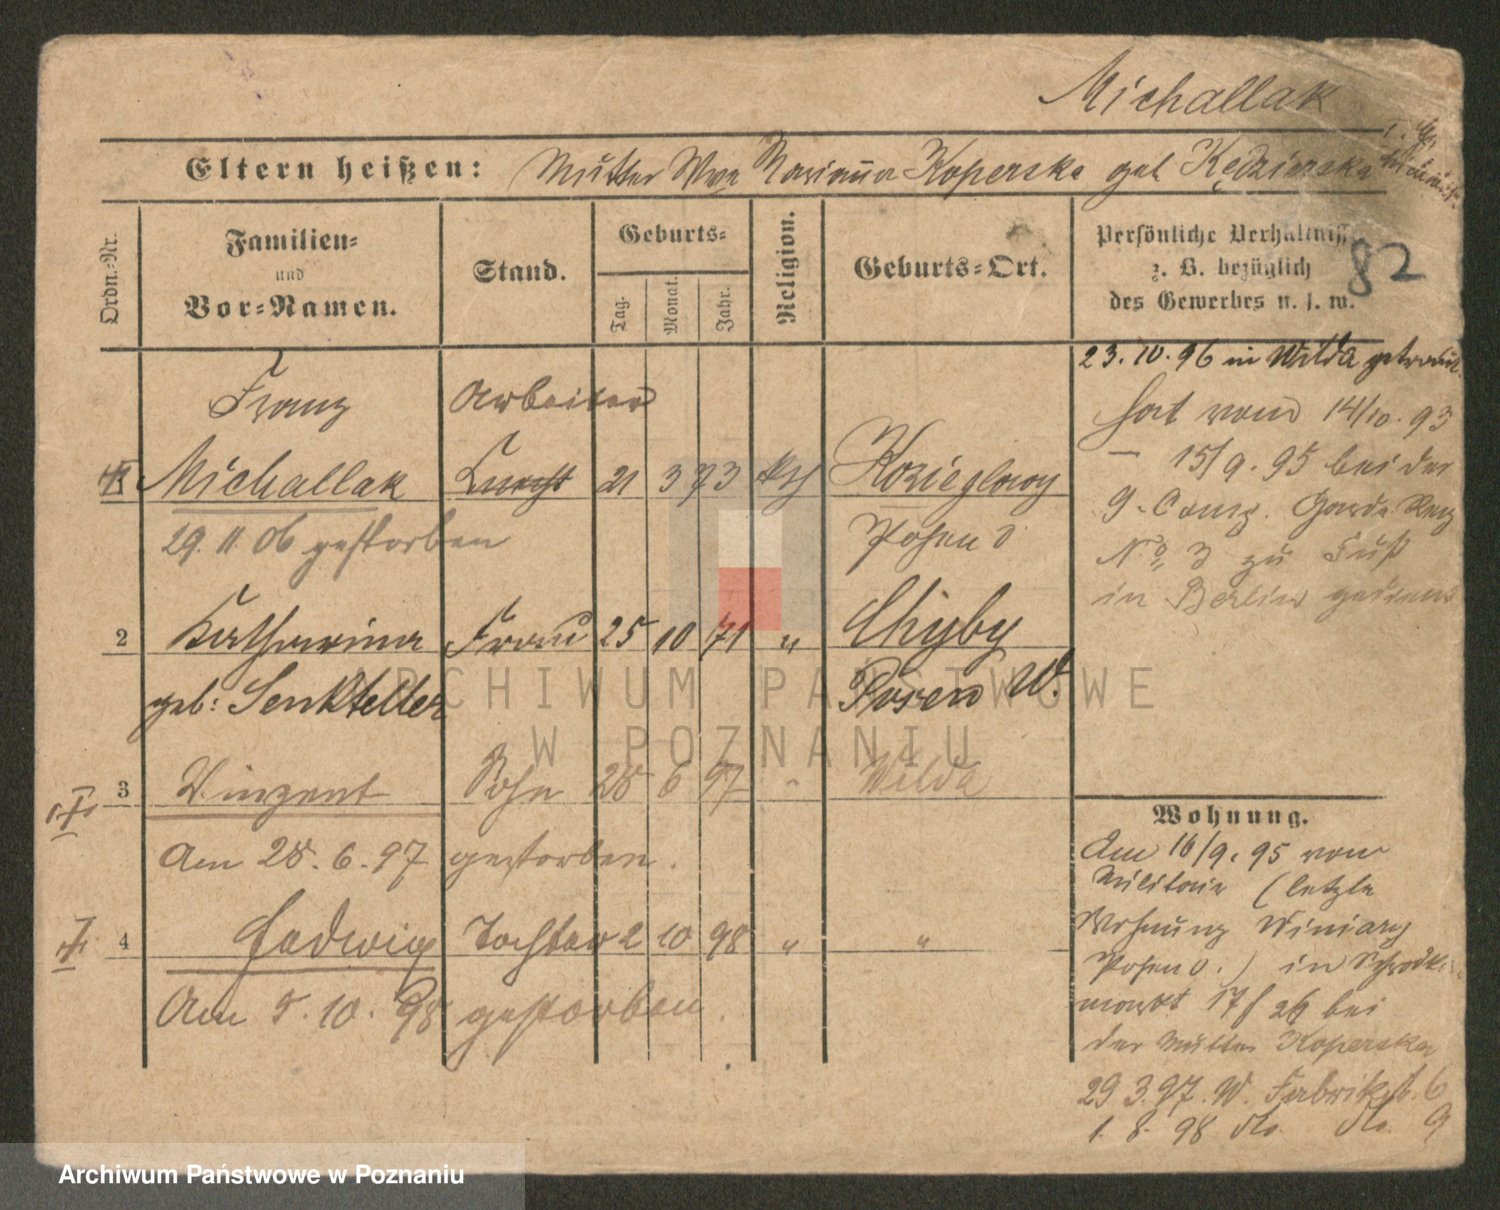 Michallak
Eltern heißen: Mutter Wwe Marianna Koperska geb. Kędzierska
Ordn.-Nr.
Familien-
und
Vor-Namen.
Stand.
Geburts-
Tag.
Monat.
Jahr.
Religion.
Geburts-Ort.
Persönliche Verhältniss
z. B. bezüglich
des Gewerbes u. s. w.
82
23.10.96 in Wilda getraut
Franz Arbeiter
hat vom 14/10.93
1 Michallak Knecht 21 3 73 kth Kozieglowy
— 15/9.95 bei der
9. Comp. Garde Reg
29.11.06 gestorben Posen O
No 3 zu Fuß
in Berlin gedient
2 Katharina Frau 25 10 71 " Chyby
geb: Senkteller Posen W.
3 Vinzent Sohn 28 6 97 " Wilda
Am 28.6.97 gestorben.
4 Hedwig Tochter 2 10 98 " "
Am 5.10.98 gestorben.
Wohnung.
Am 16/9.95 vom
Militair (letzte
Wohnung Winiary
Posen O.) in Schrodk
markt 17 bei
der Mutter Koperska
29.3.97. W. Fabrikst. 6
1.8.98 do. do. 9
ARCHIWUM PAŃSTWOWE
W POZNANIU
Archiwum Państwowe w Poznaniu